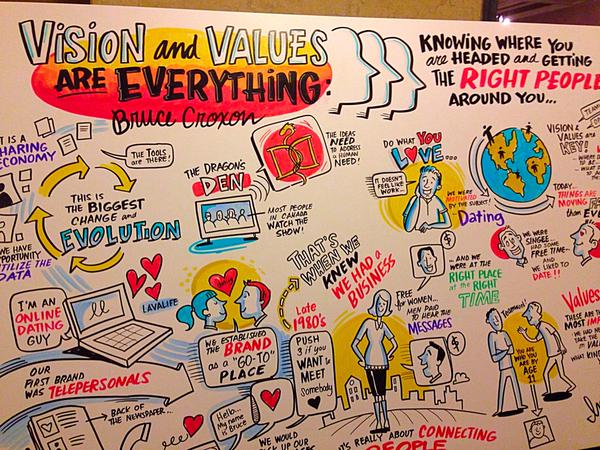 VISION and VALUES
ARE EVERYTHING:
Bruce Croxon
KNOWING WHERE YOU
are HEADED and GETTING
THE RIGHT PEOPLE
AROUND YOU...
IT IS A
SHARING
ECONOMY
The TOOLS
are THERE!
THIS IS
THE BIGGEST
CHANGE and
EVOLUTION
HAVE
OPPORTUNITY
UTILIZE THE
DATA
THE DRAGON'S
DEN
MOST PEOPLE
IN CANADA
WATCH THE
SHOW!
THE IDEAS
NEED TO
ADDRESS a
HUMAN
NEED!
DO WHAT YOU
LOVE...
IT DOESN'T
FEEL LIKE
WORK...
WE WERE
MOTIVATED
BY THE SUBJECT!
Dating
VISION &
VALUES are
KEY!
TODAY...
THINGS ARE
MOVING
than EVER
WE WERE
SINGLE
HAD SOME
FREE TIME...
AND
WE LIKED
TO DATE!!
I'M AN
ONLINE
DATING
GUY
LAVALIFE
THAT'S
WHEN WE
KNEW
WE HAD a
BUSINESS
AND WE
WERE AT THE
RIGHT PLACE
at the RIGHT
TIME
OUR
FIRST BRAND
WAS TELEPERSONALS
WE ESTABLISHED
the BRAND
as a "GO-TO"
PLACE
Late
1980's
PUSH
3 if YOU
WANT to
MEET
Somebody
FREE
for WOMEN...
MEN PAID
TO HEAR the
MESSAGES
YOU ARE
WHO YOU
ARE BY
AGE
11
Values
THESE ARE THE
MOST
BACK OF
THE NEWSPAPER...
Hello...
My name
is Bruce
WE WOULD
IT'S REALLY ABOUT CONNECTING
PEOPLE